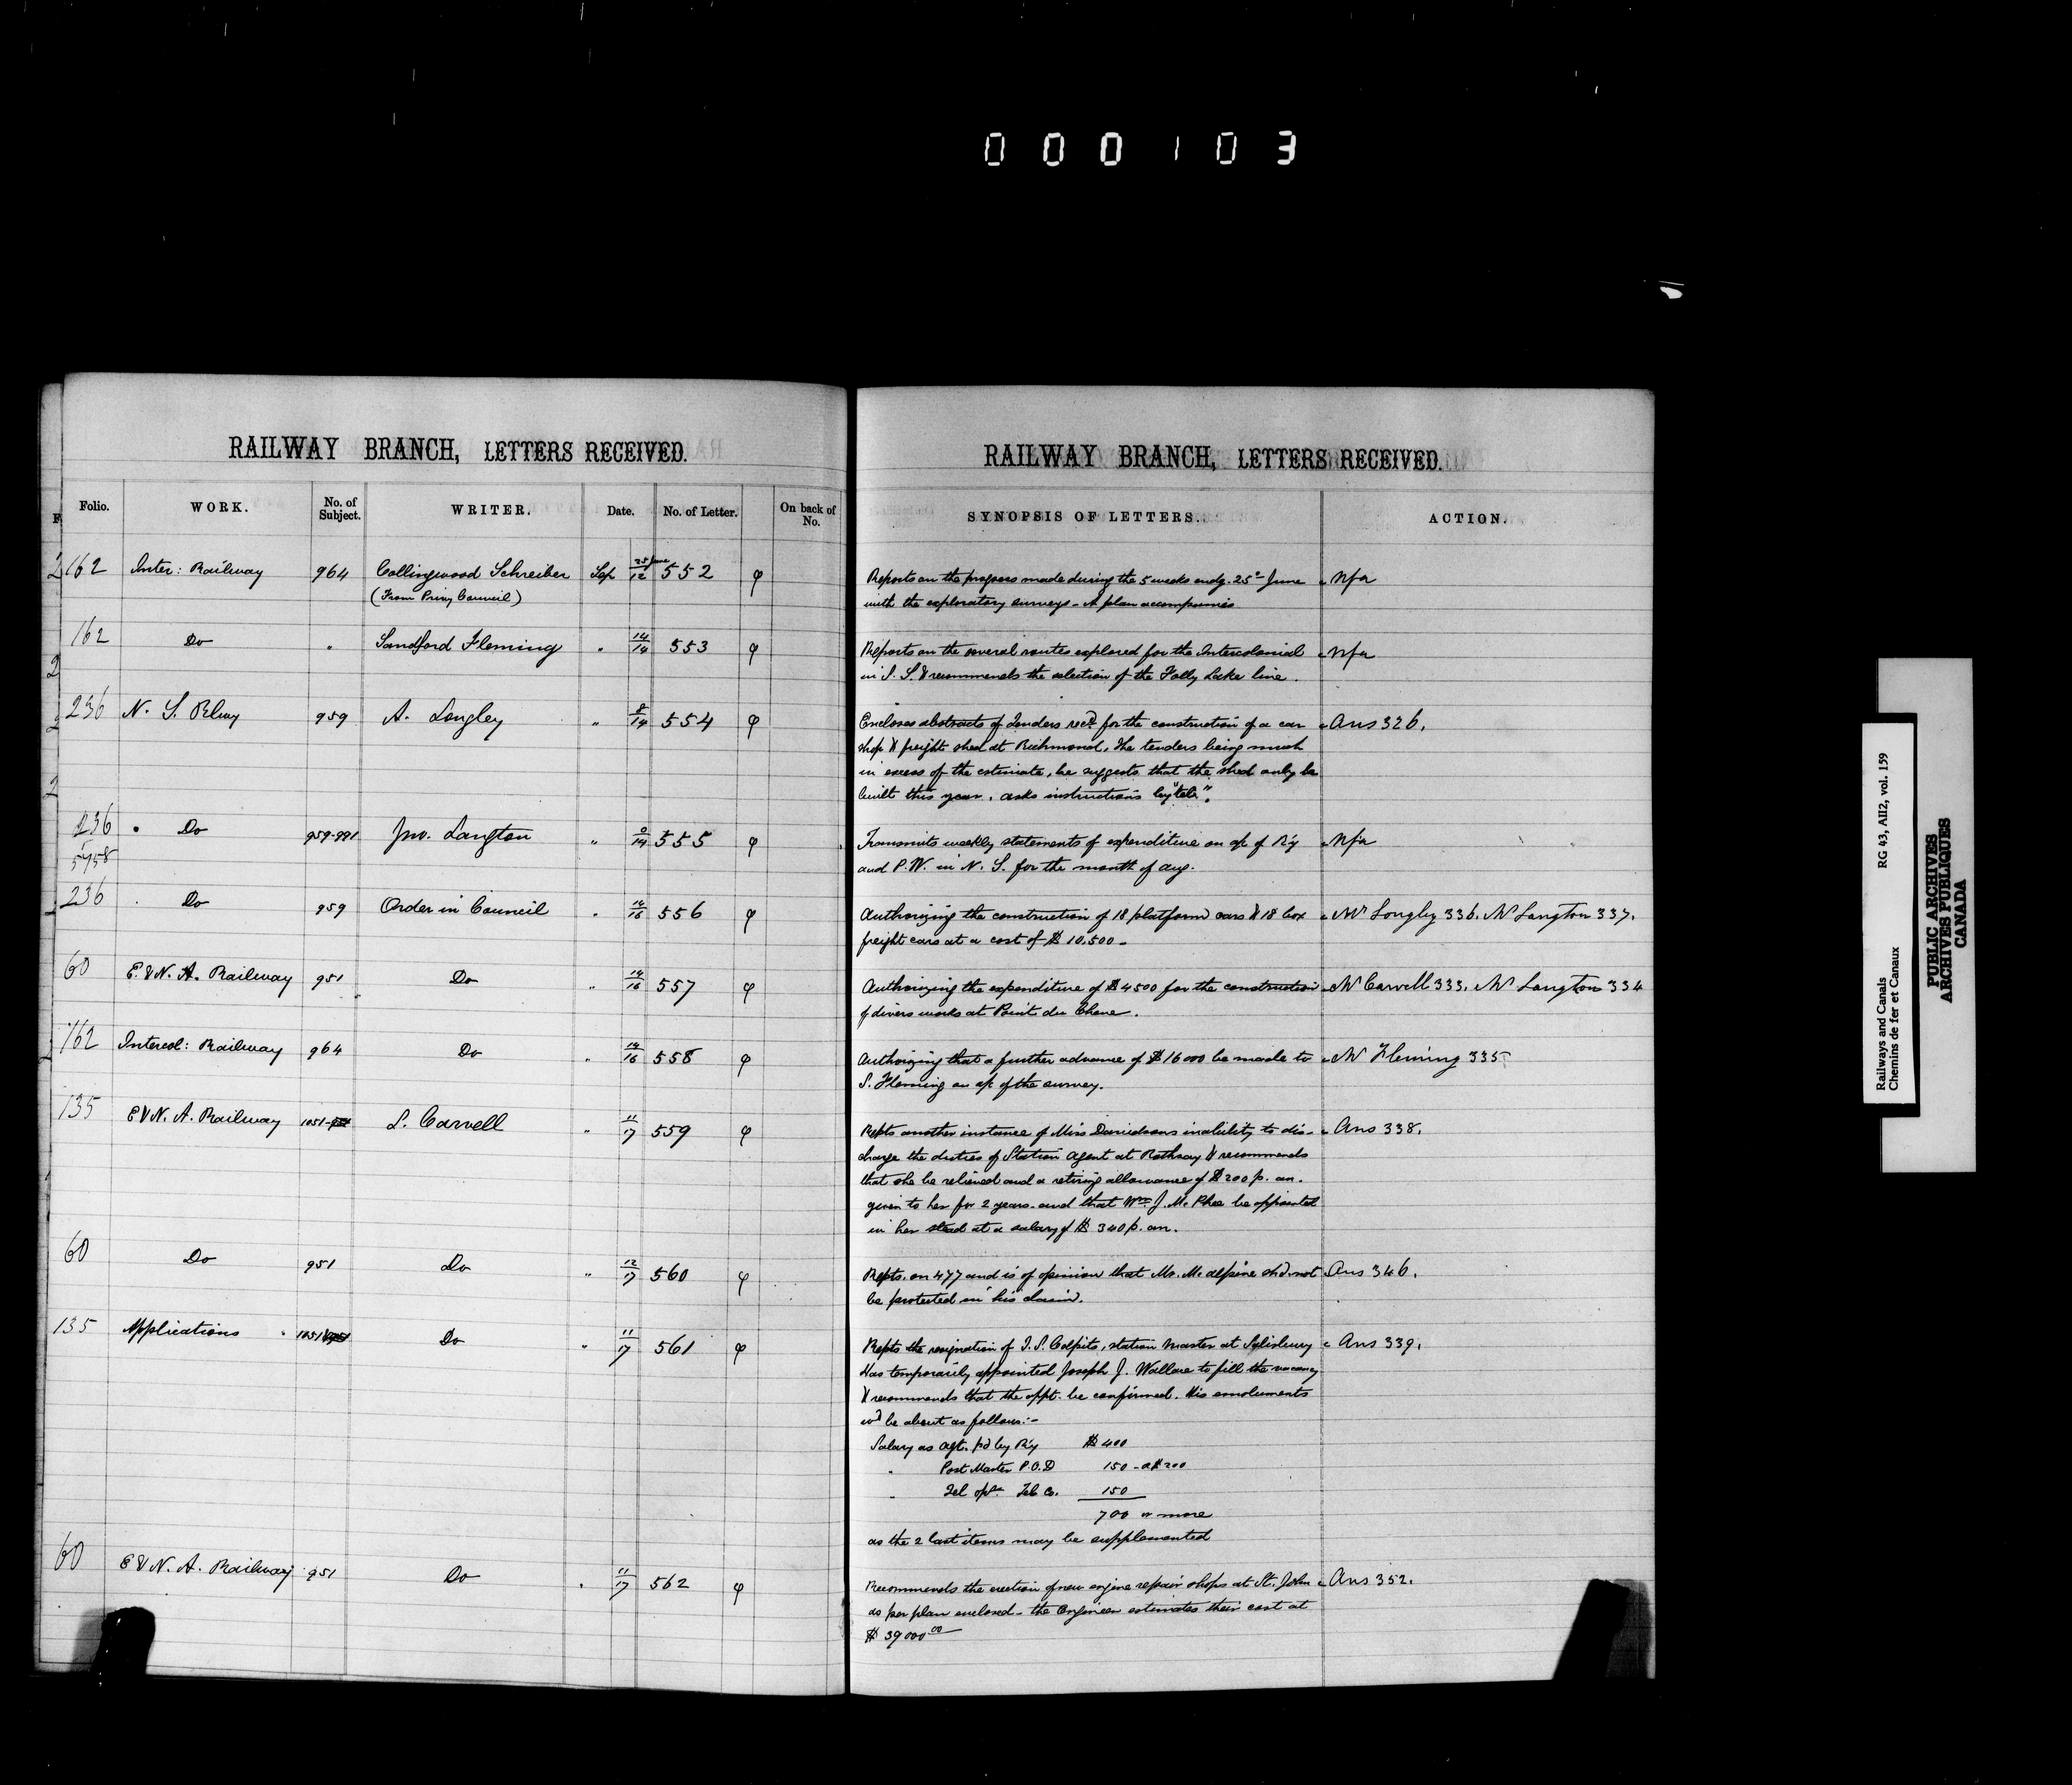 000103
RAILWAY BRANCH, LETTERS RECEIVED.
Folio. WORK. No. of Subject. WRITER. Date. No. of Letter. On back of No.
162 Inter: Railway 964 Collingwood Schreiber Sep 25 June/12 552 φ
(From Privy Council)
162 Do " Sandford Fleming " 14/14 553 φ
236 N. S. Rlway 959 A. Longley " 8/14 554 φ
236 Do 959-991 Jno. Langton " 9/14 555 φ
5758
236 Do 959 Order in Council " 14/16 556 φ
60 E. & N. A. Railway 951 Do " 14/16 557 φ
162 Intercol: Railway 964 Do " 14/16 558 φ
135 E & N. A. Railway 1051 L. Carvell " 11/17 559 φ
60 Do 951 Do " 12/17 560 φ
135 Applications 1051 Do " 11/17 561 φ
60 E & N. A. Railway 951 Do " 11/17 562 φ
RAILWAY BRANCH, LETTERS RECEIVED.
SYNOPSIS OF LETTERS. ACTION.
Reports on the progress made during the 5 weeks endg. 25th June Nfa
with the exploratory surveys - A plan accompanies
Reports on the several routes explored for the Intercolonial Nfa
in N. S. & recommends the selection of the Folly Lake line.
Encloses abstracts of Tenders recd. for the construction of a car Ans 326.
shop & freight shed at Richmond. The tenders being much
in excess of the estimate, he suggests that the shed only be
built this year. asks instructions by "tele".
Transmits weekly statements of expenditure on a/c of R'y Nfa
and P.W. in N. S. for the month of Aug.
Authorizing the construction of 18 platform cars & 18 box Mr Longley 336. Mr Langton 337.
freight cars at a cost of $ 10.500 -
Authorizing the expenditure of $4500 for the construction Mr Carvell 333. Mr Langton 334
of divers works at Point du Chene.
Authorizing that a further advance of $16000 be made to Mr Fleming 335
S. Fleming on a/c of the survey.
Repts another instance of Miss Davidsons inability to dis- Ans 338.
charge the duties of Station Agent at Rothsay & recommends
that she be relieved and a retiring allowance of $200 p. an.
given to her for 2 years. and that Wm. J. McPhee be appointed
in her stead at a salary of $ 340 p. an.
Repts. on 477 and is of opinion that Mr. McAlpine shd. not Ans 346.
be protected in his claim.
Repts the resignation of T. S. Colpits, station Master at Salisbury Ans 339.
Has temporarily appointed Joseph J. Wallace to fill the vacancy
& recommends that the appt. be confirmed. His emoluments
wd be about as follows:-
Salary as Agt. pd by R'y $ 400
" Post Master P.O.D 150 - a $200
" Tel opr. Tel Co. 150
700 or more
as the 2 last items may be supplemented
Recommends the erection of new engine repair shops at St. John Ans 352.
as per plan enclosed - the Engineer estimates their cost at
$ 39000.00
Railways and Canals RG 43, AII2, vol. 159
Chemins de fer et Canaux
PUBLIC ARCHIVES
ARCHIVES PUBLIQUES
CANADA